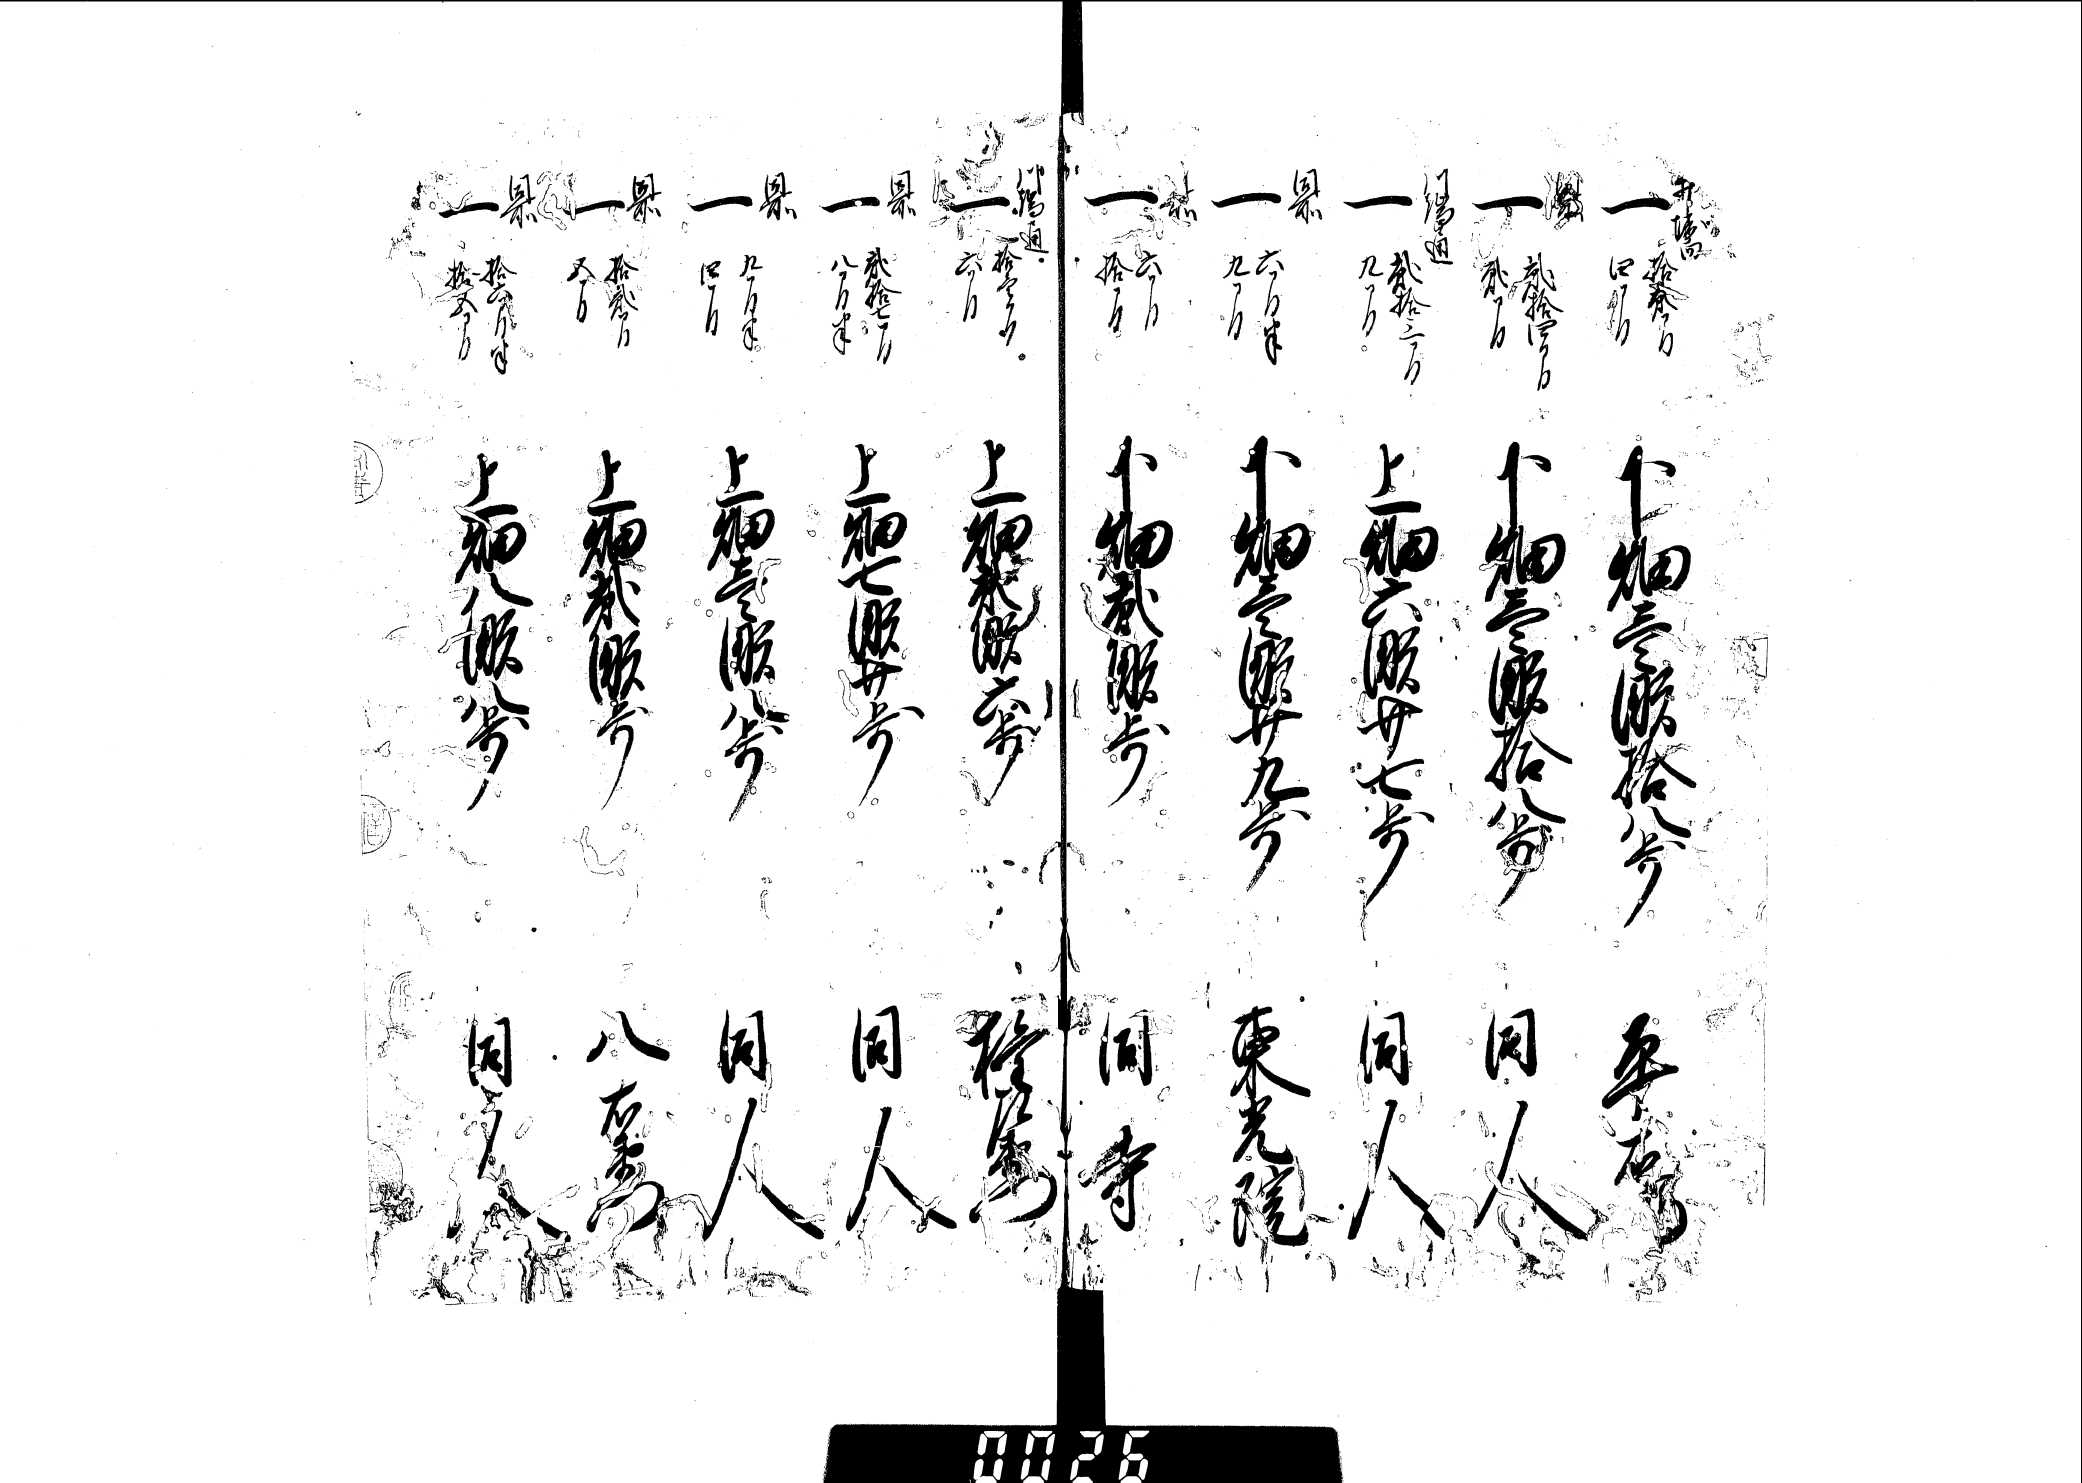 一 拾弐間 四間 下畑壱畝拾八歩
同所 一 弐拾四間 弐間 下畑壱畝拾八歩 同人
一 弐拾三間 九間 上畑六畝廿七歩 同人
同所 一 六間半 九間 下畑壱畝廿九歩 東光院
同所 一 六間 拾間 下畑弐畝歩 同寺
一 拾壱間 六間 上畑弐畝六歩
同所 一 弐拾七間 八間半 上畑七畝廿歩 同人
同所 一 九間半 四間 上畑壱畝八歩 同人
同所 一 拾弐間 五間 上畑弐畝歩 八右衛門
同所 一 拾六間半 拾五間 上畑八畝八歩 同人
0026